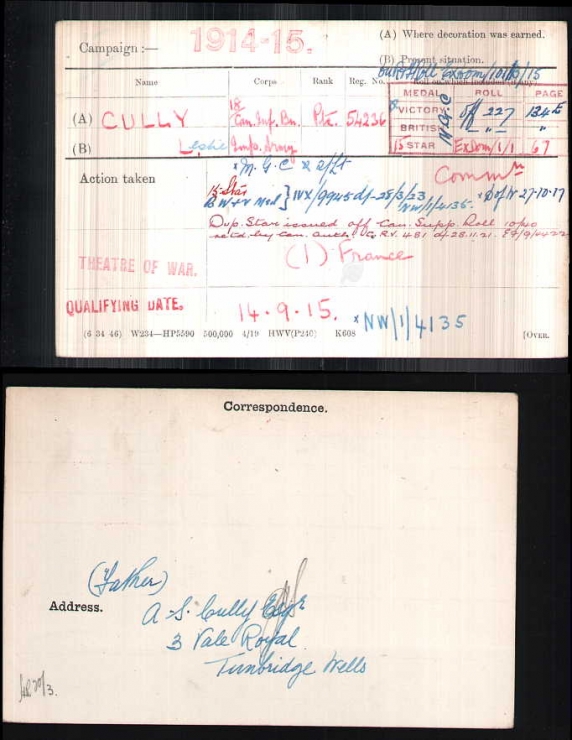 Campaign :— 1914-15.
(A) Where decoration was earned.
(B) Present situation.
Name Corps Rank Reg. No.
MEDAL ROLL PAGE
(A) CULLY 18 Can. Inf. Bn. Pte. 54236
VICTORY M.G.C off 227 124E
BRITISH " "
15 STAR Ex Dom/1/1 67
(B) Leslie Imp. Army
x M.G.C. x 2/Lt
Action taken
Comm
15 Star
B W + V Med } WX/9945 d/- 28/3/23 x D of W 27-10-17
NW/1/4135.
Dup. Star issued off Can. Supp. Roll 10/40
retd. by Can. auth. R.V. 481 d/ 28.11.21.
THEATRE OF WAR. (1) France
QUALIFYING DATE. 14.9.15. x NW/1/4135
(6 34 46) W234—HP5590 500,000 4/19 HWV(P240) K608 [OVER.
Correspondence.
(Father)
Address. A. S. Cully Esqr
3 Vale Royal
Tunbridge Wells